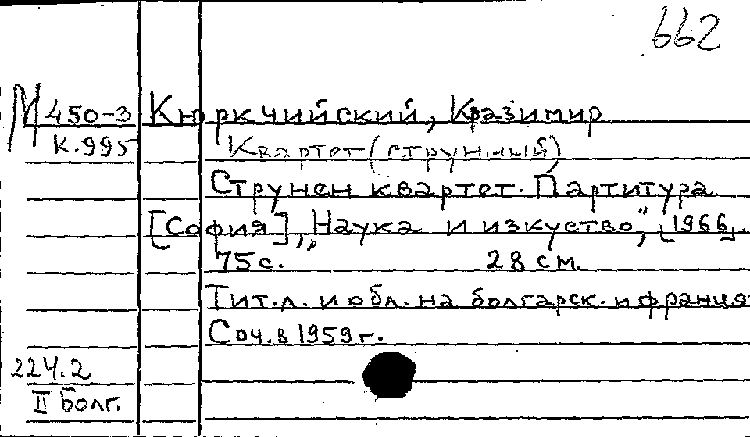 662
М 450-3 Кюркчийский, Кразимир
К.995 Квартет (струнный)
Струнен квартет. Партитура
[София], „Наука и изкуство”, [1966].
75 с. 28 см.
Тит.л. и обл. на болгарск. и франця
Соч. в 1959 г.
224.2
II Болг.